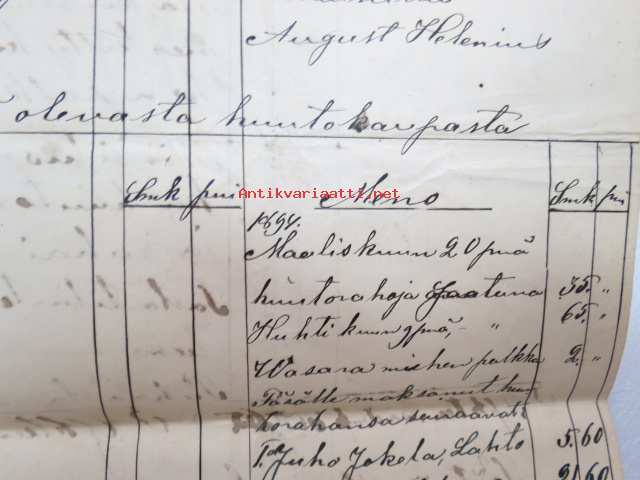 August Helenius
olevasta huutokaupasta
Smk pni Meno Smk pni
Antikvariaatti.net
1894.
Maaliskuun 20 pnä
huutorahoja saatuna 35. "
Huhtikuun 9 pnä, - " 65. "
Wasara miehen palkka 2. "
Tasälle maksanut huu
torahansa seuraavat
1. Juho Jokela, Lahto 5.60
2.60